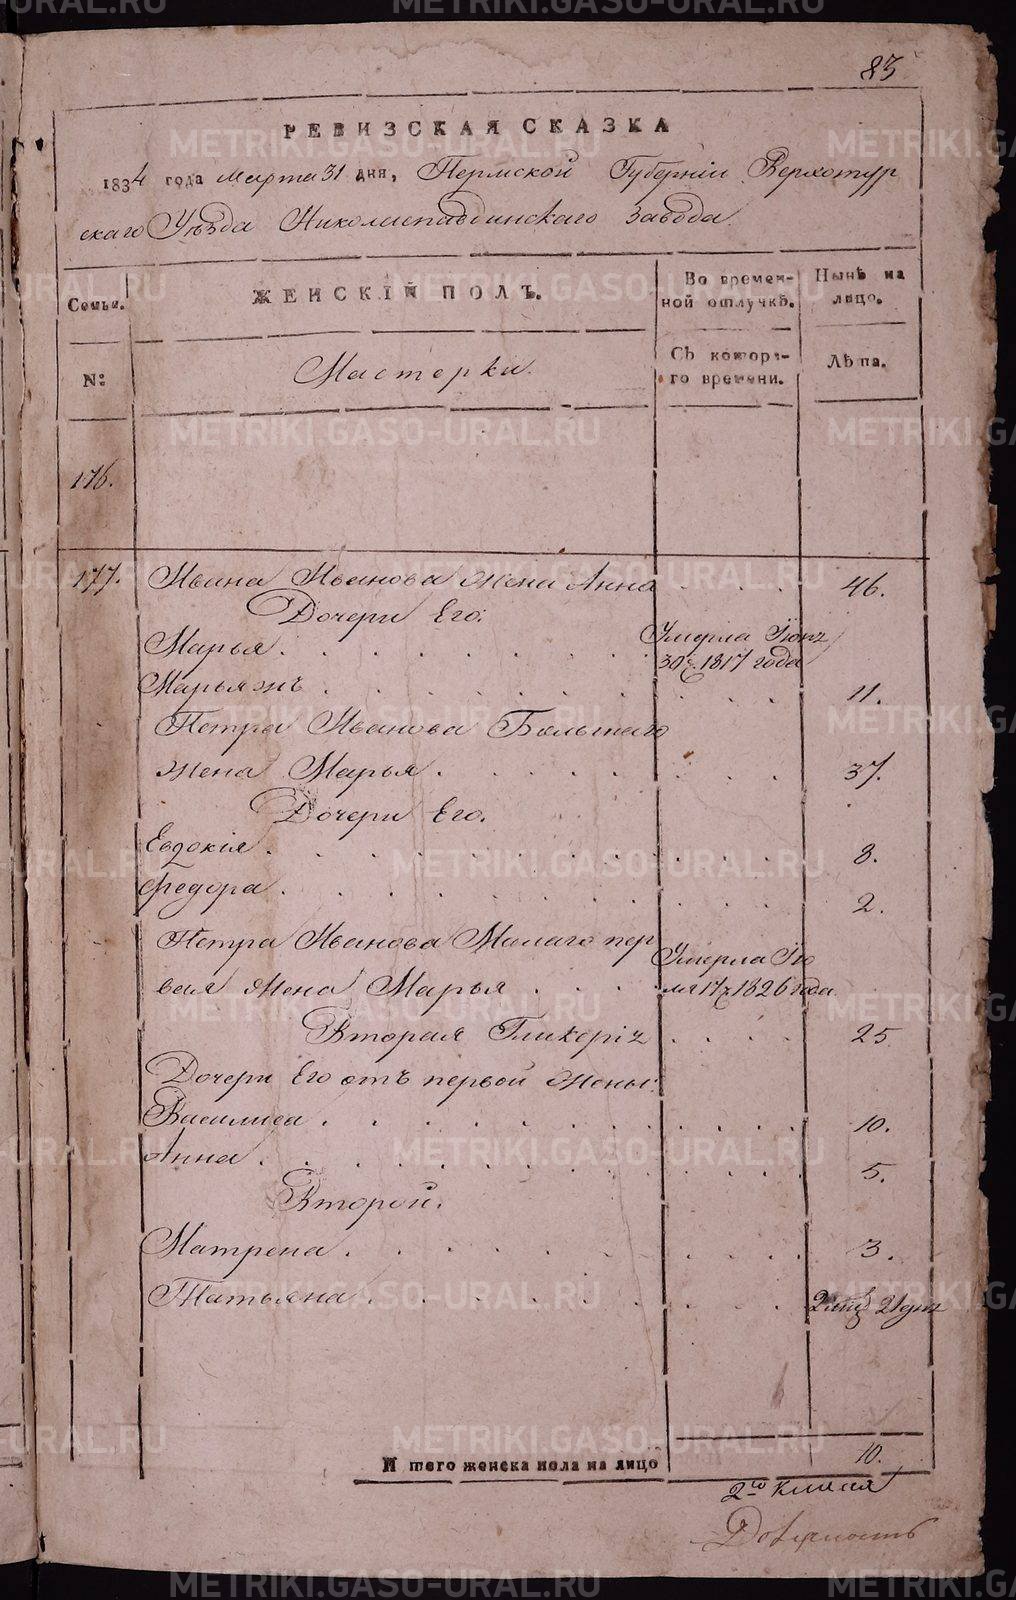 83
РЕВИЗСКАЯ СКАЗКА
1834 года Марта 31 дня, Пермской Губернiи Верхотур
скаго Уѣзда Николаепавдинскаго завода
Семьи.
ЖЕНСКIЙ ПОЛЪ.
Во времен-
ной отлучкѣ.
Нынѣ на
лицо.
№:
Мастерки.
Съ котора-
го времени.
Лѣта.
176.
177. Ивана Иванова жена Анна . . . 46.
Дочери Его:
Марья . . . . . . . Умерла Iюня
30ч. 1817 года
Марья жъ . . . . . . . . . 11.
Петра Иванова Большаго
жена Марья . . . . . . . . 37.
Дочери Его.
Евдокiя . . . . . . . . . . 8.
Федора . . . . . . . . . . 2.
Петра Иванова Малаго пер
вая жена Марья . . . Умерла Iю
ля 17ч 1826 года
Вторая Гликерiя . . . . 25.
Дочери Его отъ первой жены:
Василиса . . . . . . . . . . 10.
Анна . . . . . . . . . . 5.
Второй.
Матрена . . . . . . . . . 3.
Татьяна . . . . . . . . . 21 дня
И того женска пола на лицо 10.
2го класса
METRIKI.GASO-URAL.RU